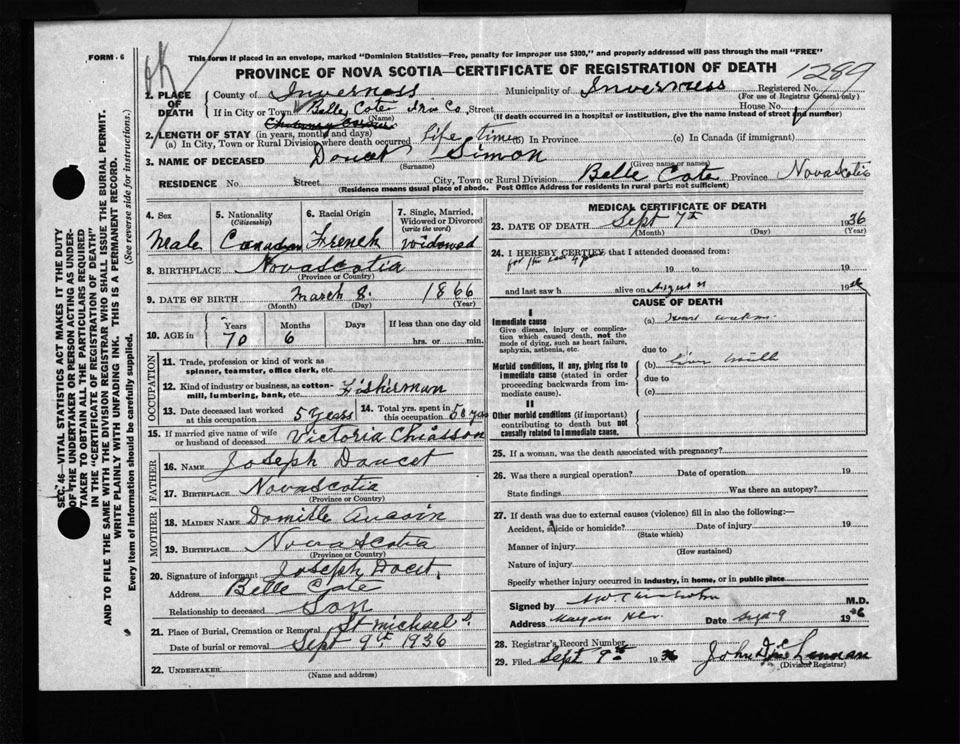 FORM - 6
ok
This form if placed in an envelope, marked "Dominion Statistics—Free, penalty for improper use $300," and properly addressed will pass through the mail "FREE"
PROVINCE OF NOVA SCOTIA—CERTIFICATE OF REGISTRATION OF DEATH
1289
1. PLACE OF DEATH
County of Inverness Municipality of Inverness Registered No.
(For use of Registrar General only)
If in City or Town Belle Cote Inv Co. Street House No.
(Name) (If death occurred in a hospital or institution, give the name instead of street and number)
2. LENGTH OF STAY (in years, months and days)
(a) In City, Town or Rural Division where death occurred life time (b) In Province (c) In Canada (if immigrant)
3. NAME OF DECEASED Doucet Simon
(Surname) (Given name or names)
RESIDENCE No. Street City, Town or Rural Division Belle Cote Province Nova Scotia
(Residence means usual place of abode. Post Office Address for residents in rural parts not sufficient)
4. Sex
Male
5. Nationality
(Citizenship)
Canadian
6. Racial Origin
French
7. Single, Married, Widowed or Divorced
(write the word)
widowed
8. BIRTHPLACE Nova Scotia
(Province or Country)
9. DATE OF BIRTH March 8 1866
(Month) (Day) (Year)
10. AGE in
Years Months Days If less than one day old
70 6 hrs. or min.
OCCUPATION
11. Trade, profession or kind of work as spinner, teamster, office clerk, etc.
12. Kind of industry or business, as cotton-mill, lumbering, bank, etc. Fisherman
13. Date deceased last worked at this occupation 5 years
14. Total yrs. spent in this occupation 50 yrs
15. If married give name of wife or husband of deceased Victoria Chiasson
FATHER
16. NAME Joseph Doucet
17. BIRTHPLACE Nova Scotia
(Province or Country)
MOTHER
18. MAIDEN NAME Domitle
19. BIRTHPLACE Nova Scotia
(Province or Country)
20. Signature of informant Joseph Docet
Address Belle Cote
Relationship to deceased Son
21. Place of Burial, Cremation or Removal St Michael's
Date of burial or removal Sept 9th 1936
22. UNDERTAKER
(Name and address)
MEDICAL CERTIFICATE OF DEATH
23. DATE OF DEATH Sept 7th 1936
(Month) (Day) (Year)
24. I HEREBY CERTIFY that I attended deceased from:
for the last
19 to 19
and last saw h alive on August 1936
CAUSE OF DEATH
I
Immediate cause
Give disease, injury or complication which caused death, not the mode of dying, such as heart failure, asphyxia, asthenia, etc.
(a) Heart
due to
Morbid conditions, if any, giving rise to immediate cause (stated in order proceeding backwards from immediate cause).
(b)
due to
(c)
II
Other morbid conditions (if important) contributing to death but not causally related to immediate cause.
25. If a woman, was the death associated with pregnancy?
26. Was there a surgical operation? Date of operation 19
State findings Was there an autopsy?
27. If death was due to external causes (violence) fill in also the following:—
Accident, suicide or homicide? Date of injury 19
(State which)
Manner of injury
(How sustained)
Nature of injury
Specify whether injury occurred in industry, in home, or in public place
Signed by M.D.
Address Date Sept 9 1936
28. Registrar's Record Number
29. Filed Sept 9th 1936 John D
(Division Registrar)
SEC. 46—VITAL STATISTICS ACT MAKES IT THE DUTY
OF THE UNDERTAKER OR PERSON ACTING AS UNDER-
TAKER TO OBTAIN ALL THE PARTICULARS REQUIRED
IN THE "CERTIFICATE OF REGISTRATION OF DEATH"
AND TO FILE THE SAME WITH THE DIVISION REGISTRAR WHO SHALL ISSUE THE BURIAL PERMIT.
WRITE PLAINLY WITH UNFADING INK. THIS IS A PERMANENT RECORD.
Every item of Information should be carefully supplied. (See reverse side for instructions.)